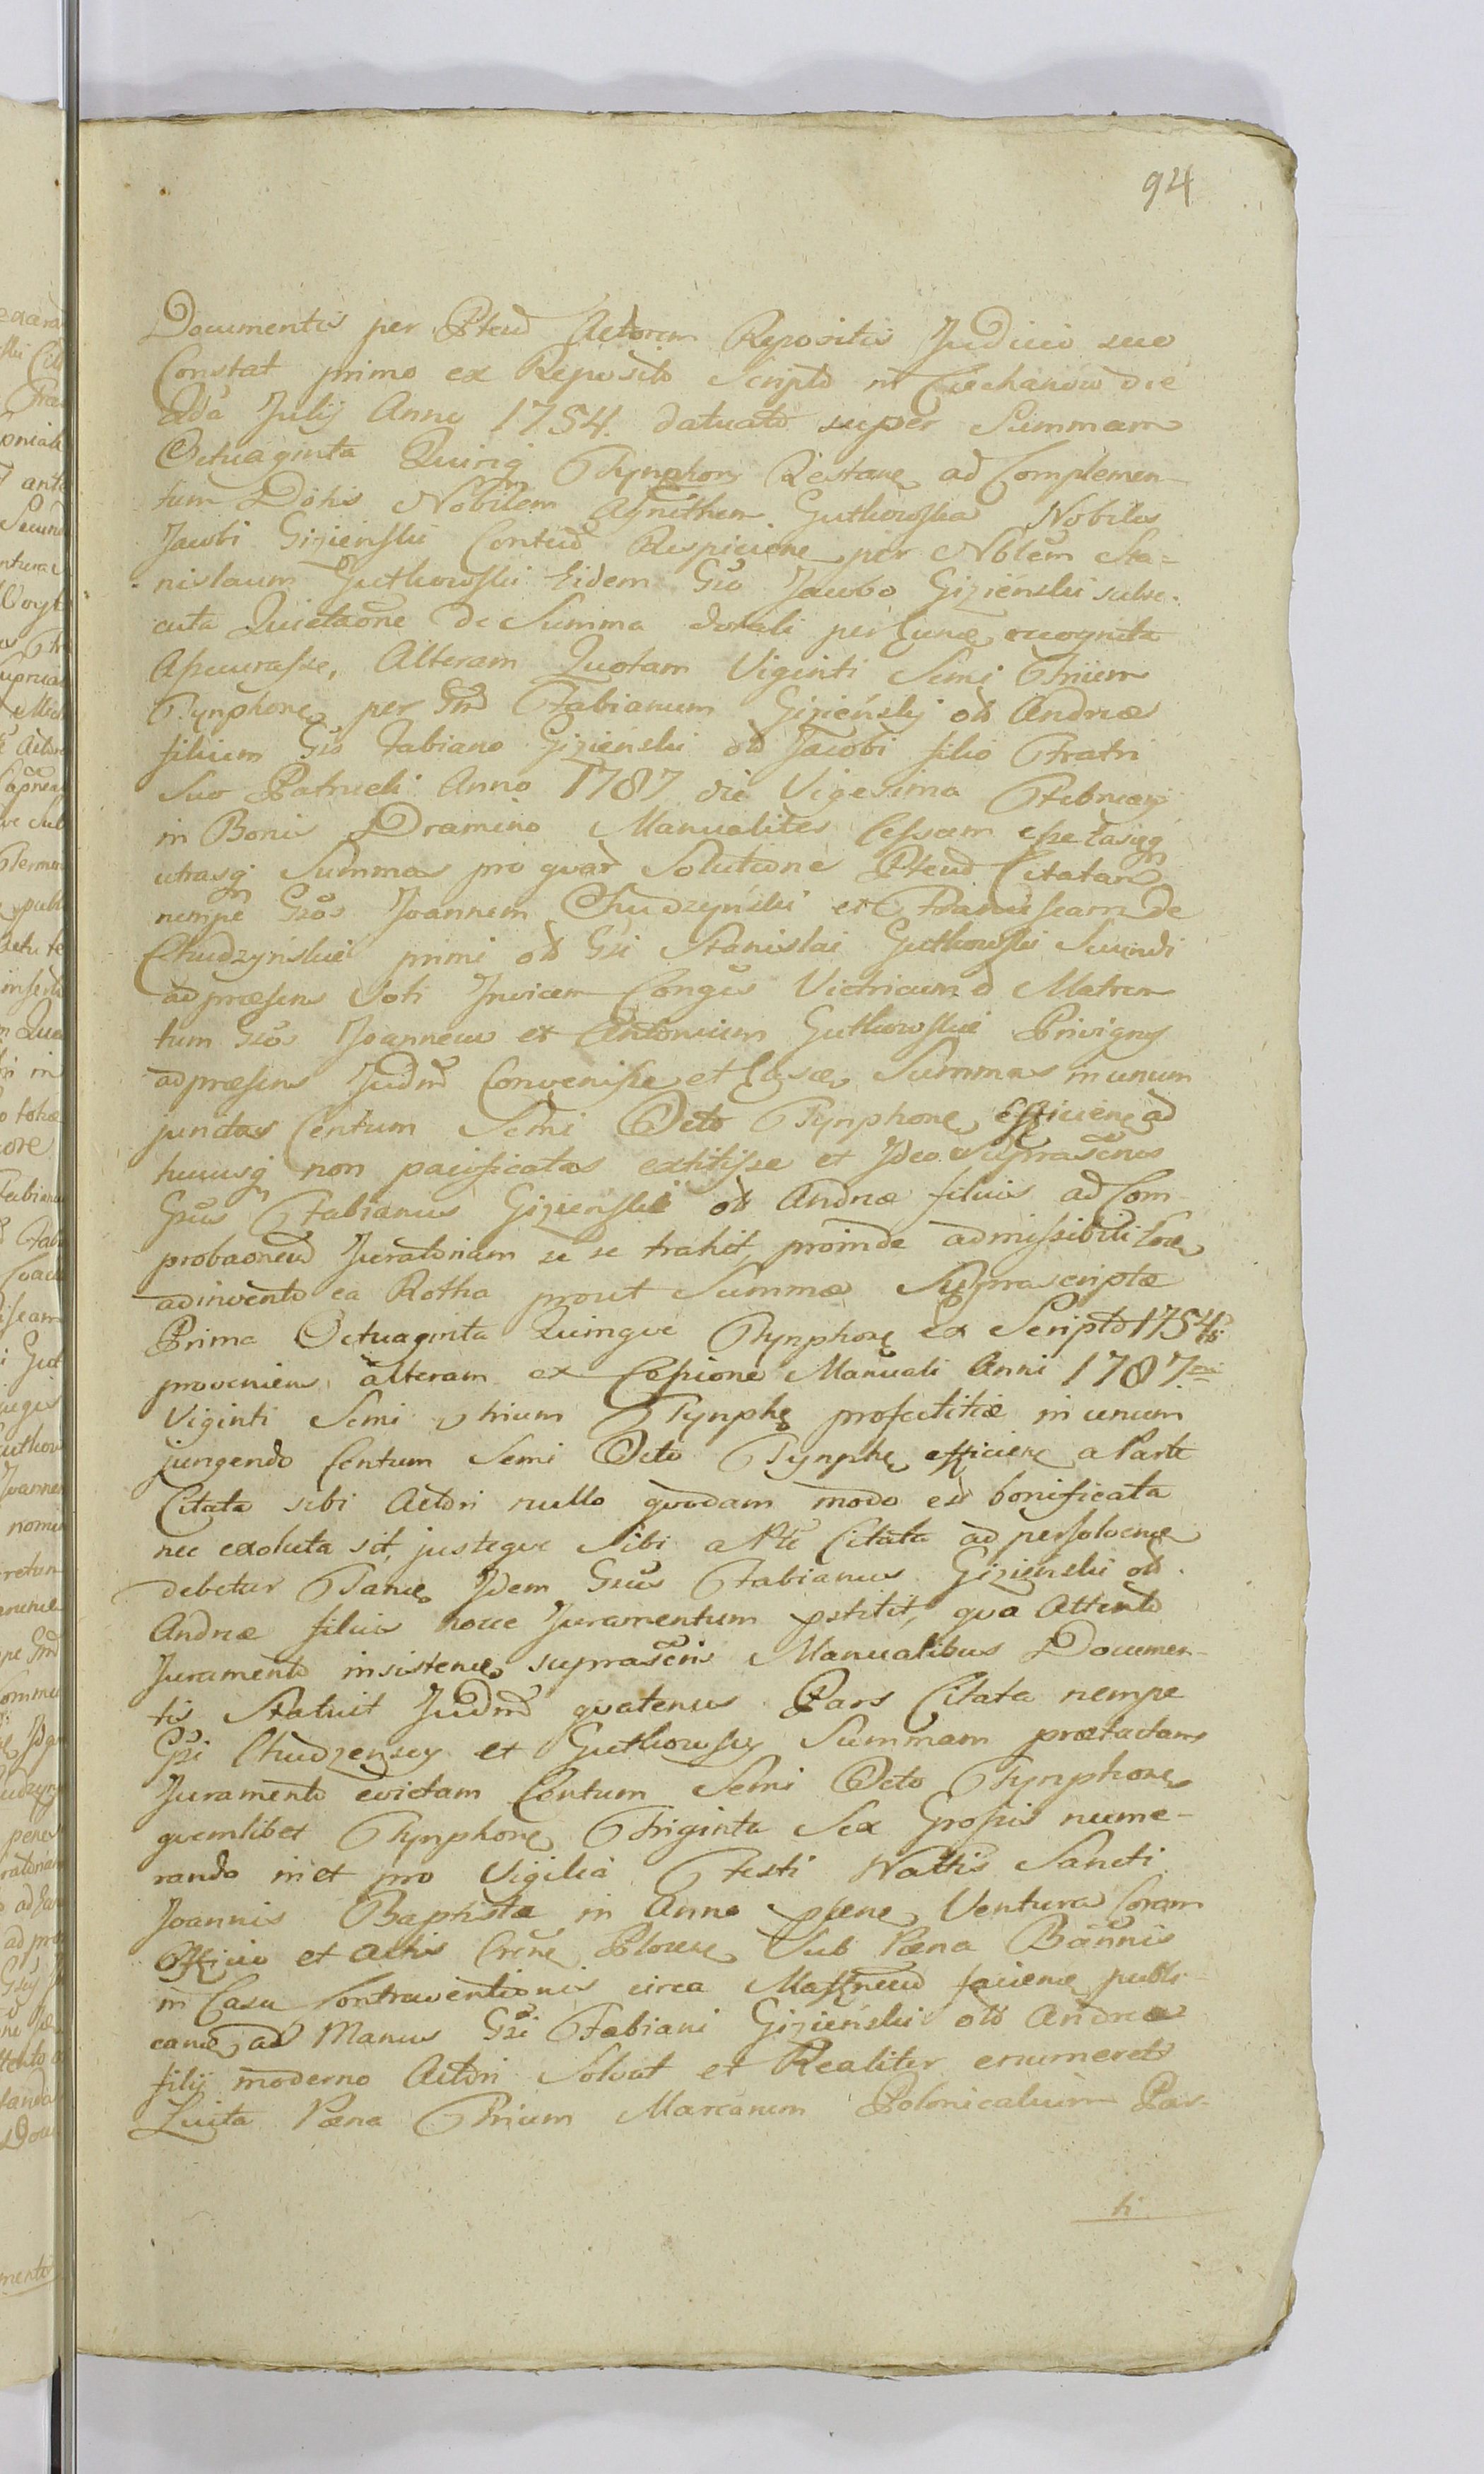 94
Documentis per Ptem Actorem Repositis Judicio suo
Constat primo ex Reposito Scripto in Ciechanow die
2da Julij Anno 1754. datuato super Summam
Octuaginta Quinq Tynphon Restane ad Complemen-
tum Dotis Nobilem Agnethem Gutkowska Nobilis
Jacobi Gizienski Respiciene per Noblem Sta-
nislaum Gutkowski Eidem Gso Jacobo Gizienski subse-
cuta Quietaone de Summa dotali per recognita
Assecurasse, Alteram Quotam Viginti Semi Trium
Tynphone per Gsm Fabianum Gizieński olt Andreæ
filium Gso Fabiano Gizienski olt Jacobi filio Fratri
Suo Patrueli Anno 1787 die Vigesima Februarij
in Bonis Dramino Manualiter Cessam esse easqq
utrasq Summas pro quar Solutione Ptem Citatam
nempe Gsos Joannem Chudzyński et Franciscam de
Chudzyńskie primi olt Gsi Stanislai Gutkowski Secundi
ad præsens Voti Invicem Conges Victricum d Matrem
tum Gsos Joannem et Antonium Gutkowskie Privignos
ad præsens Judm Convenisse et Easde Summas in unum
junctas Centum Semi Octo Tynphone Efficiene ad
hucusq non pacificatas extitisse et Ideo Suprascnus
Gsus Fabianus Gizienski olt Andreæ filius ad Com-
probaonem Juratoriam se se trahit, proinde admissibili
adinvento ea Rotha prout Summæ Suprascriptæ
Prima Octuaginta Quinque Tynphone ex Scripto 1754ti
proveniens alteram ex Cessione Manuali Anni 1787mi
Viginti Semi trium Tynphe profectitiæ in unum
jungendo Centum Semi Octo Tynphe efficiene a Parte
Citata sibi Actori nullo quodam modo est bonificata
nec exoluta sit, justeque Sibi a Pte Citata ad persolvene
debetur Idem Gsus Fabianus Gizienski olt.
Andreæ filius hocce Juramentum pstitit, qua Attento
Juramento insistene suprascnis Manualibus Documen-
tis Statuit Judm quatenus Pars Citata nempe
Gsi Chudzenscy et Gutkowscy Summam prætactam
Juramento evictam Centum Semi Octo Tynphone
quemlibet Tynphone Triginta Sex Grossis nume-
rando in et pro Vigilia Festi Nattis Sancti
Joannis Baptistæ in Anno psene Ventura Coram
Officio et Actis Sub Pæna Bannis
in Casu Contraventionis circa faciene publi-
cane ad Manus Gsi Fabiani Gizieński olt Andreæ
filij moderno Actori Solvat et Realiter enumeret
Luita Pæna Trium Marcarum Polonicalium Par-
ti